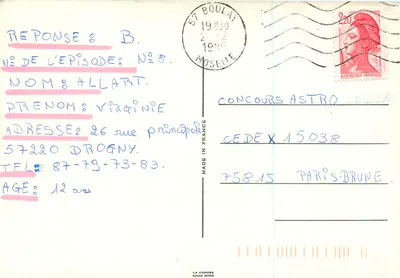 REPONSE: B.
N° DE L'EPISODE: N°8.
NOM: ALLART.
PRENOM: VIRGINIE
ADRESSE: 26 rue principale
57220 DROGNY.
TEL: 87-79-73-83.
AGE: 12 ans
57 BOULAY
MOSELLE
2,20
REPUBLIQUE FRANÇAISE
MADE IN FRANCE
CONCOURS ASTRO
CEDEX 15038
75815 PARIS-BRUNE